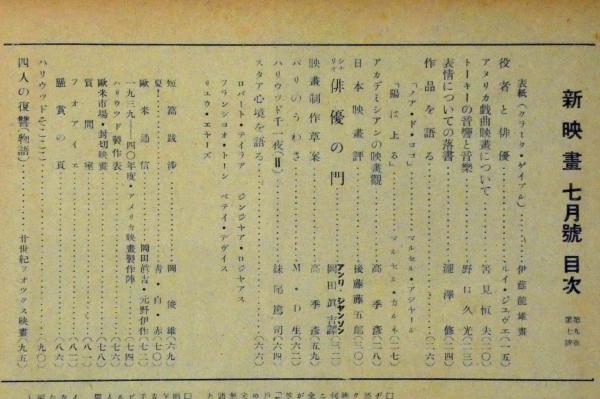 新映畫 七月號 目次
第九卷
第七號
表紙(クラーク・ゲイブル)…………伊藤龍雄畫
役者と俳優…………ルイ・ジユヴエ(一五)
アメリカ戯曲映畫について…………筈見恒夫(二〇)
トーキーの音響と音樂…………野口久光(二三)
表情についての落書…………瀧澤修(二四)
作品を語る…………(二六)
「ノア・ド・ココ」…………マルセル・アシヤール
「陽は上る」…………マルセル・カルネ(二七)
アカデミシアンの映畫觀…………高季彦(二八)
日本映畫評…………後藤藤五郎(三〇)
シナリオ 俳優の門…………アンリ・ジヤンソン 岡田眞吉譯(三二)
映畫制作草案…………高季彦(五九)
パリのうわさ…………M・D生(六二)
ハリウツド千一夜(Ⅱ)…………妹尾篤司(六四)
スタア心境を語る…………(六六)
ロバート・テイラア ジンジヤア・ロジヤアス
フランシヨオ・トーン ベテイ・デヴイス
リユウ・エヤーズ
短篇跋渉…………岡俊雄(六九)
夏!…………青・白・赤(七〇)
歐米通信…………岡田眞吉・元野伊作(七二)
一九三九—四〇年度・アメリカ映畫製作陣…………(七四)
ハリウツド製作表…………(七六)
歐米市場・封切映畫…………(七八)
質問室…………(八一)
フオアイエ…………(八二)
懸賞の頁…………(八六)
ハリウツドそこここ…………(九〇)
四人の復讐(物語)…………廿世紀フオツクス映畫(九五)